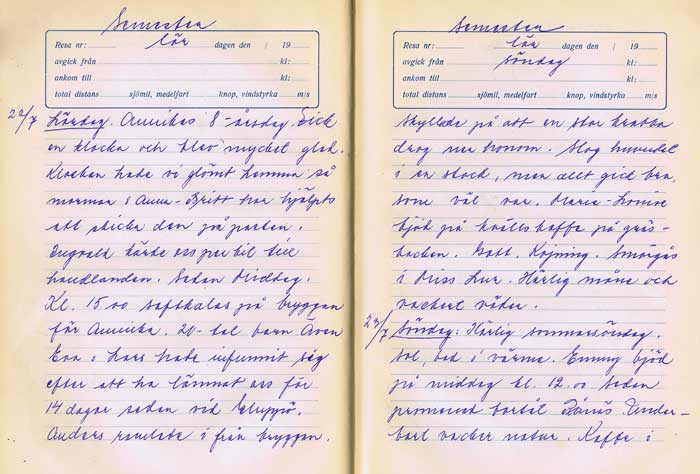 Semester
Resa nr: lör dagen den / 19
avgick från kl:
ankom till kl:
total distans sjömil, medelfart knop, vindstyrka m/s
22/7 Lördag. Annikas 8-årsdag. Fick
en klocka och blev mycket glad.
Klockan hade vi glömt hemma så
mormor & Anna-Britt har hjälpts
att skicka den på posten.
Ingvald körde oss per bil till
handlanden. Sedan Middag.
Kl. 15 00 saftkalas på bryggan
för Annika. 20-tal barn. Även
Eva & Lars hade infunnit sig
efter att ha lämnat oss för
14 dagar sedan vid
Anders ramlade i från bryggan.
Semester
Resa nr: lör dagen den / 19
avgick från söndag kl:
ankom till kl:
total distans sjömil, medelfart knop, vindstyrka m/s
skyllde på att en stor krabba
drog ner honom. Slog huvudet
i en stock, men allt gick bra,
som väl var. Marie-Louise
bjöd på kvällskaffe på gräs-
backen. Gott. Kojning. Smörgås
i Miss Lur. Härlig måne och
vackert väder.
23/7 Söndag: Härlig sommarsöndag.
Sol, bad i värme. Emmy bjöd
på middag kl. 12.00. Sedan
promenad bortåt Under-
bart vacker natur. Kaffe i